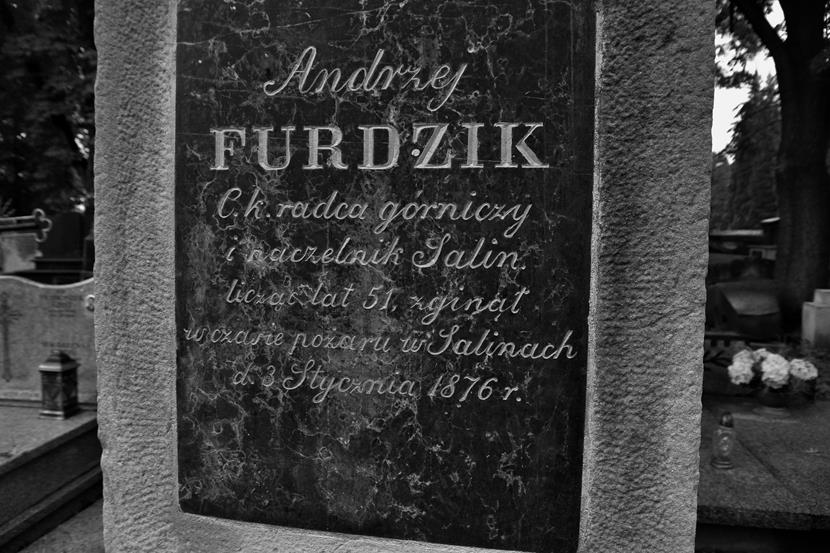 Andrzej
FURDZIK
C. k. radca górniczy
i naczelnik Salin.
licząc lat 51, zginął
w czasie pożaru w Salinach
d. 3 Stycznia 1876 r.